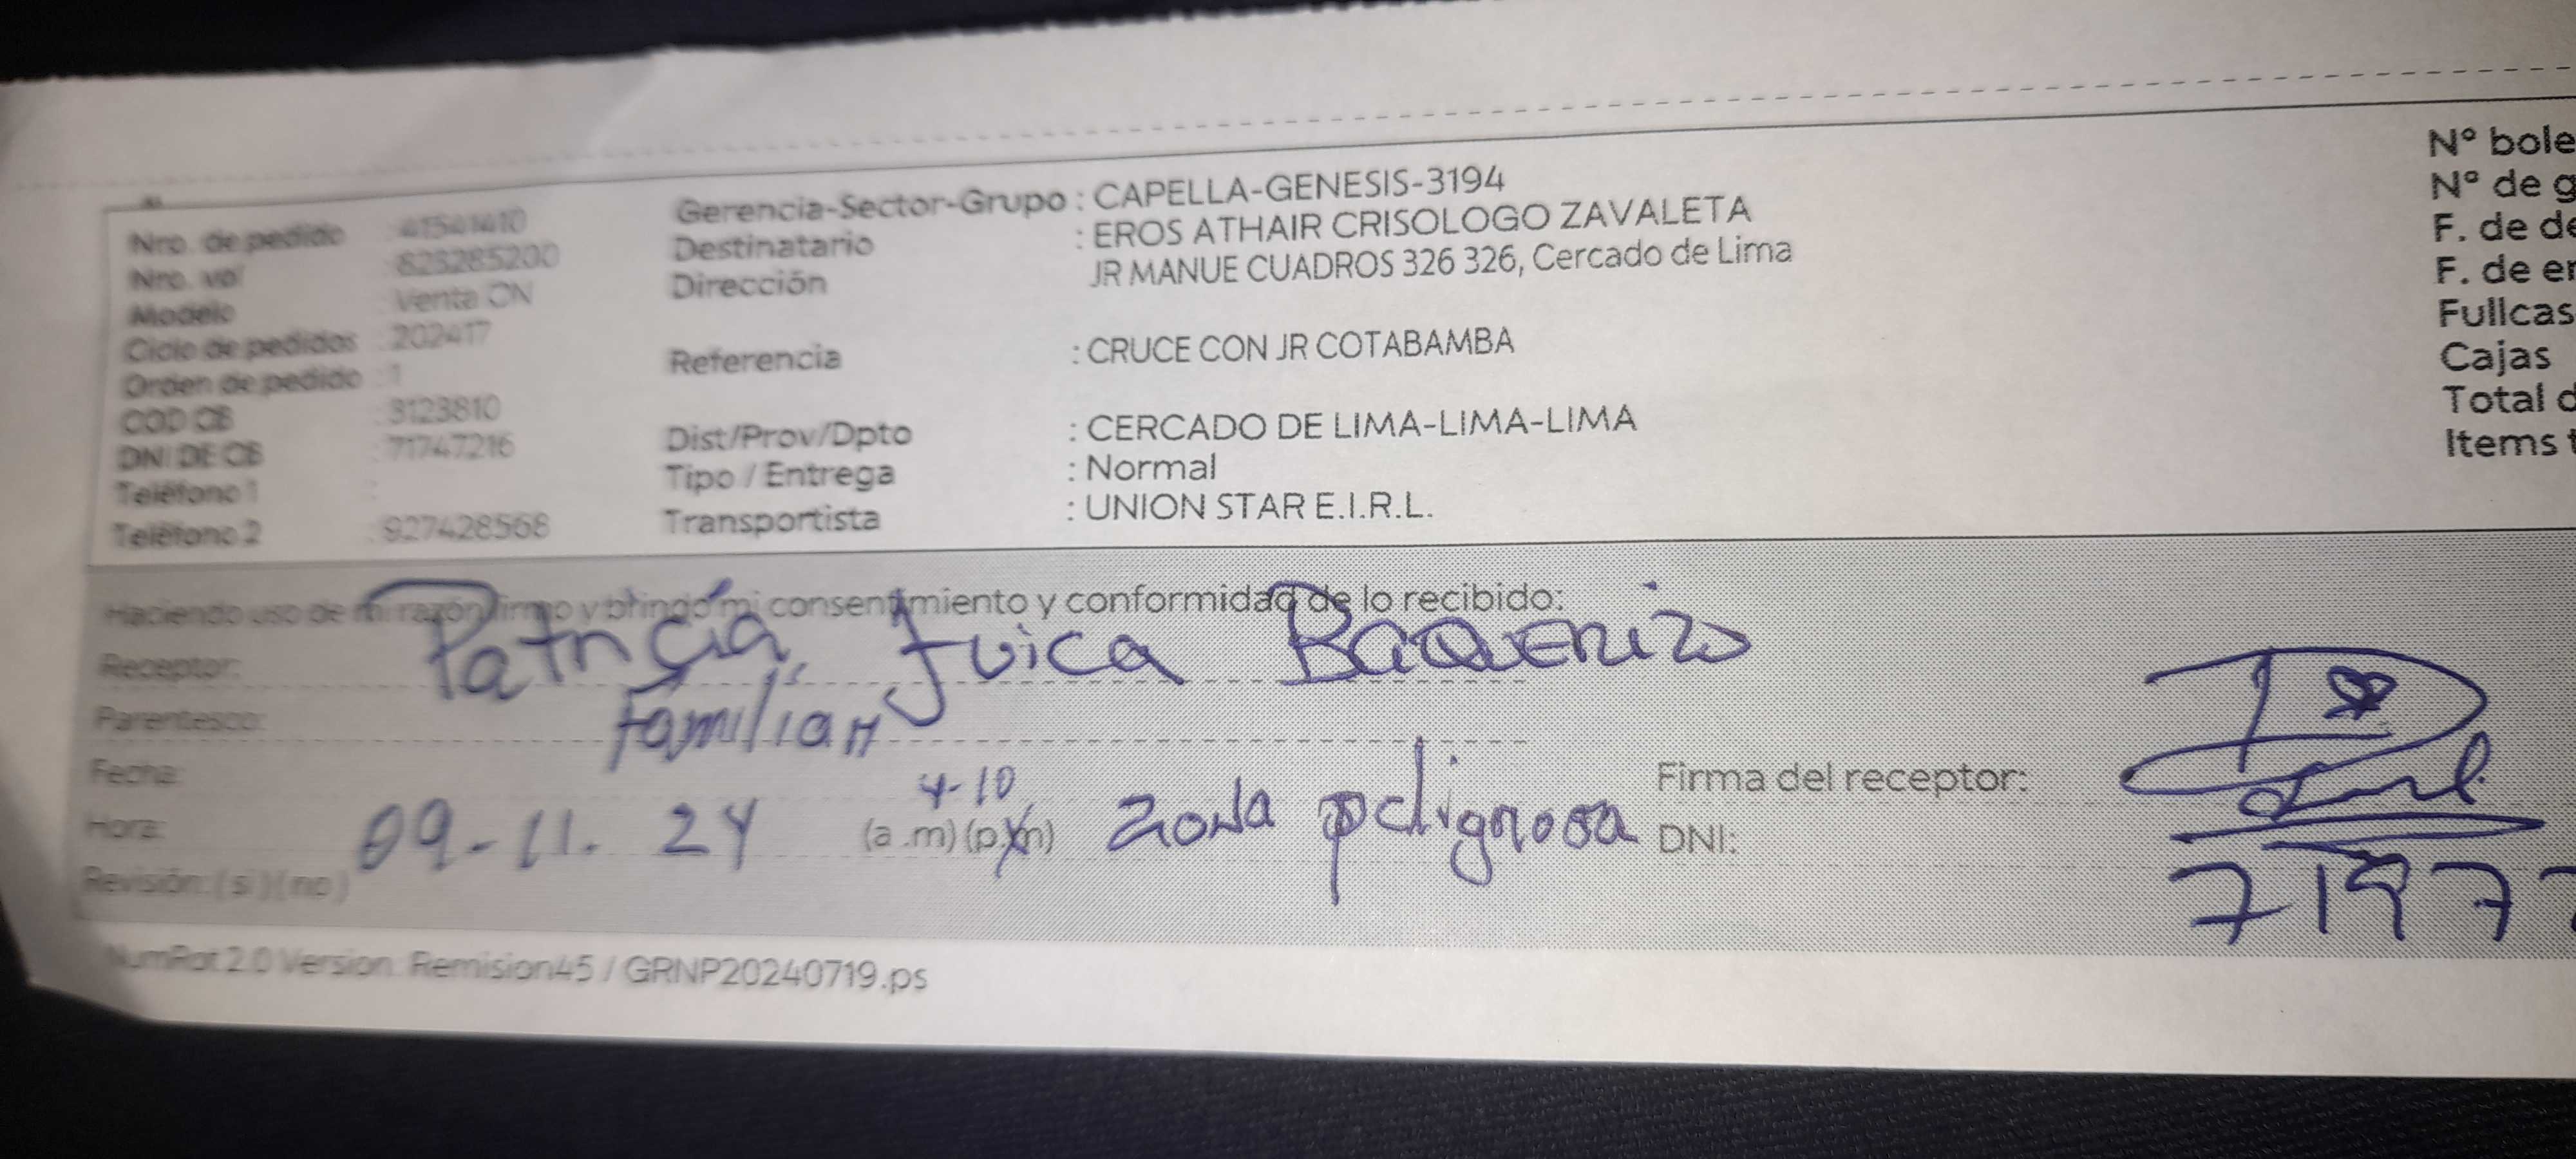 Nro. de pedido : 41541410
Nro. vol : 823285200
Modelo : Venta CN
Ciclo de pedidos : 202417
Orden de pedido : 1
COD CB : 3123810
DNI DE CB : 71747216
Teléfono 1 :
Teléfono 2 : 927428568
Gerencia-Sector-Grupo : CAPELLA-GENESIS-3194
Destinatario : EROS ATHAIR CRISOLOGO ZAVALETA
Dirección JR MANUE CUADROS 326 326, Cercado de Lima
Referencia : CRUCE CON JR COTABAMBA
Dist/Prov/Dpto : CERCADO DE LIMA-LIMA-LIMA
Tipo / Entrega : Normal
Transportista : UNION STAR E.I.R.L.
N° bole
N° de g
F. de de
F. de en
Fullcas
Cajas
Total d
Items t
Haciendo uso de mi razón firmo y brindo mi consentimiento y conformidad de lo recibido:
Receptor: Patricia Juica Baquerizo
Parentesco: Familiar
Fecha:
Hora: 09-11. 24 4-10 (a .m) (p.m) zona peligrosa
Revisión: ( si ) ( no )
Firma del receptor:
DNI: 7197
NumRot 2.0 Version: Remision45 / GRNP20240719.ps